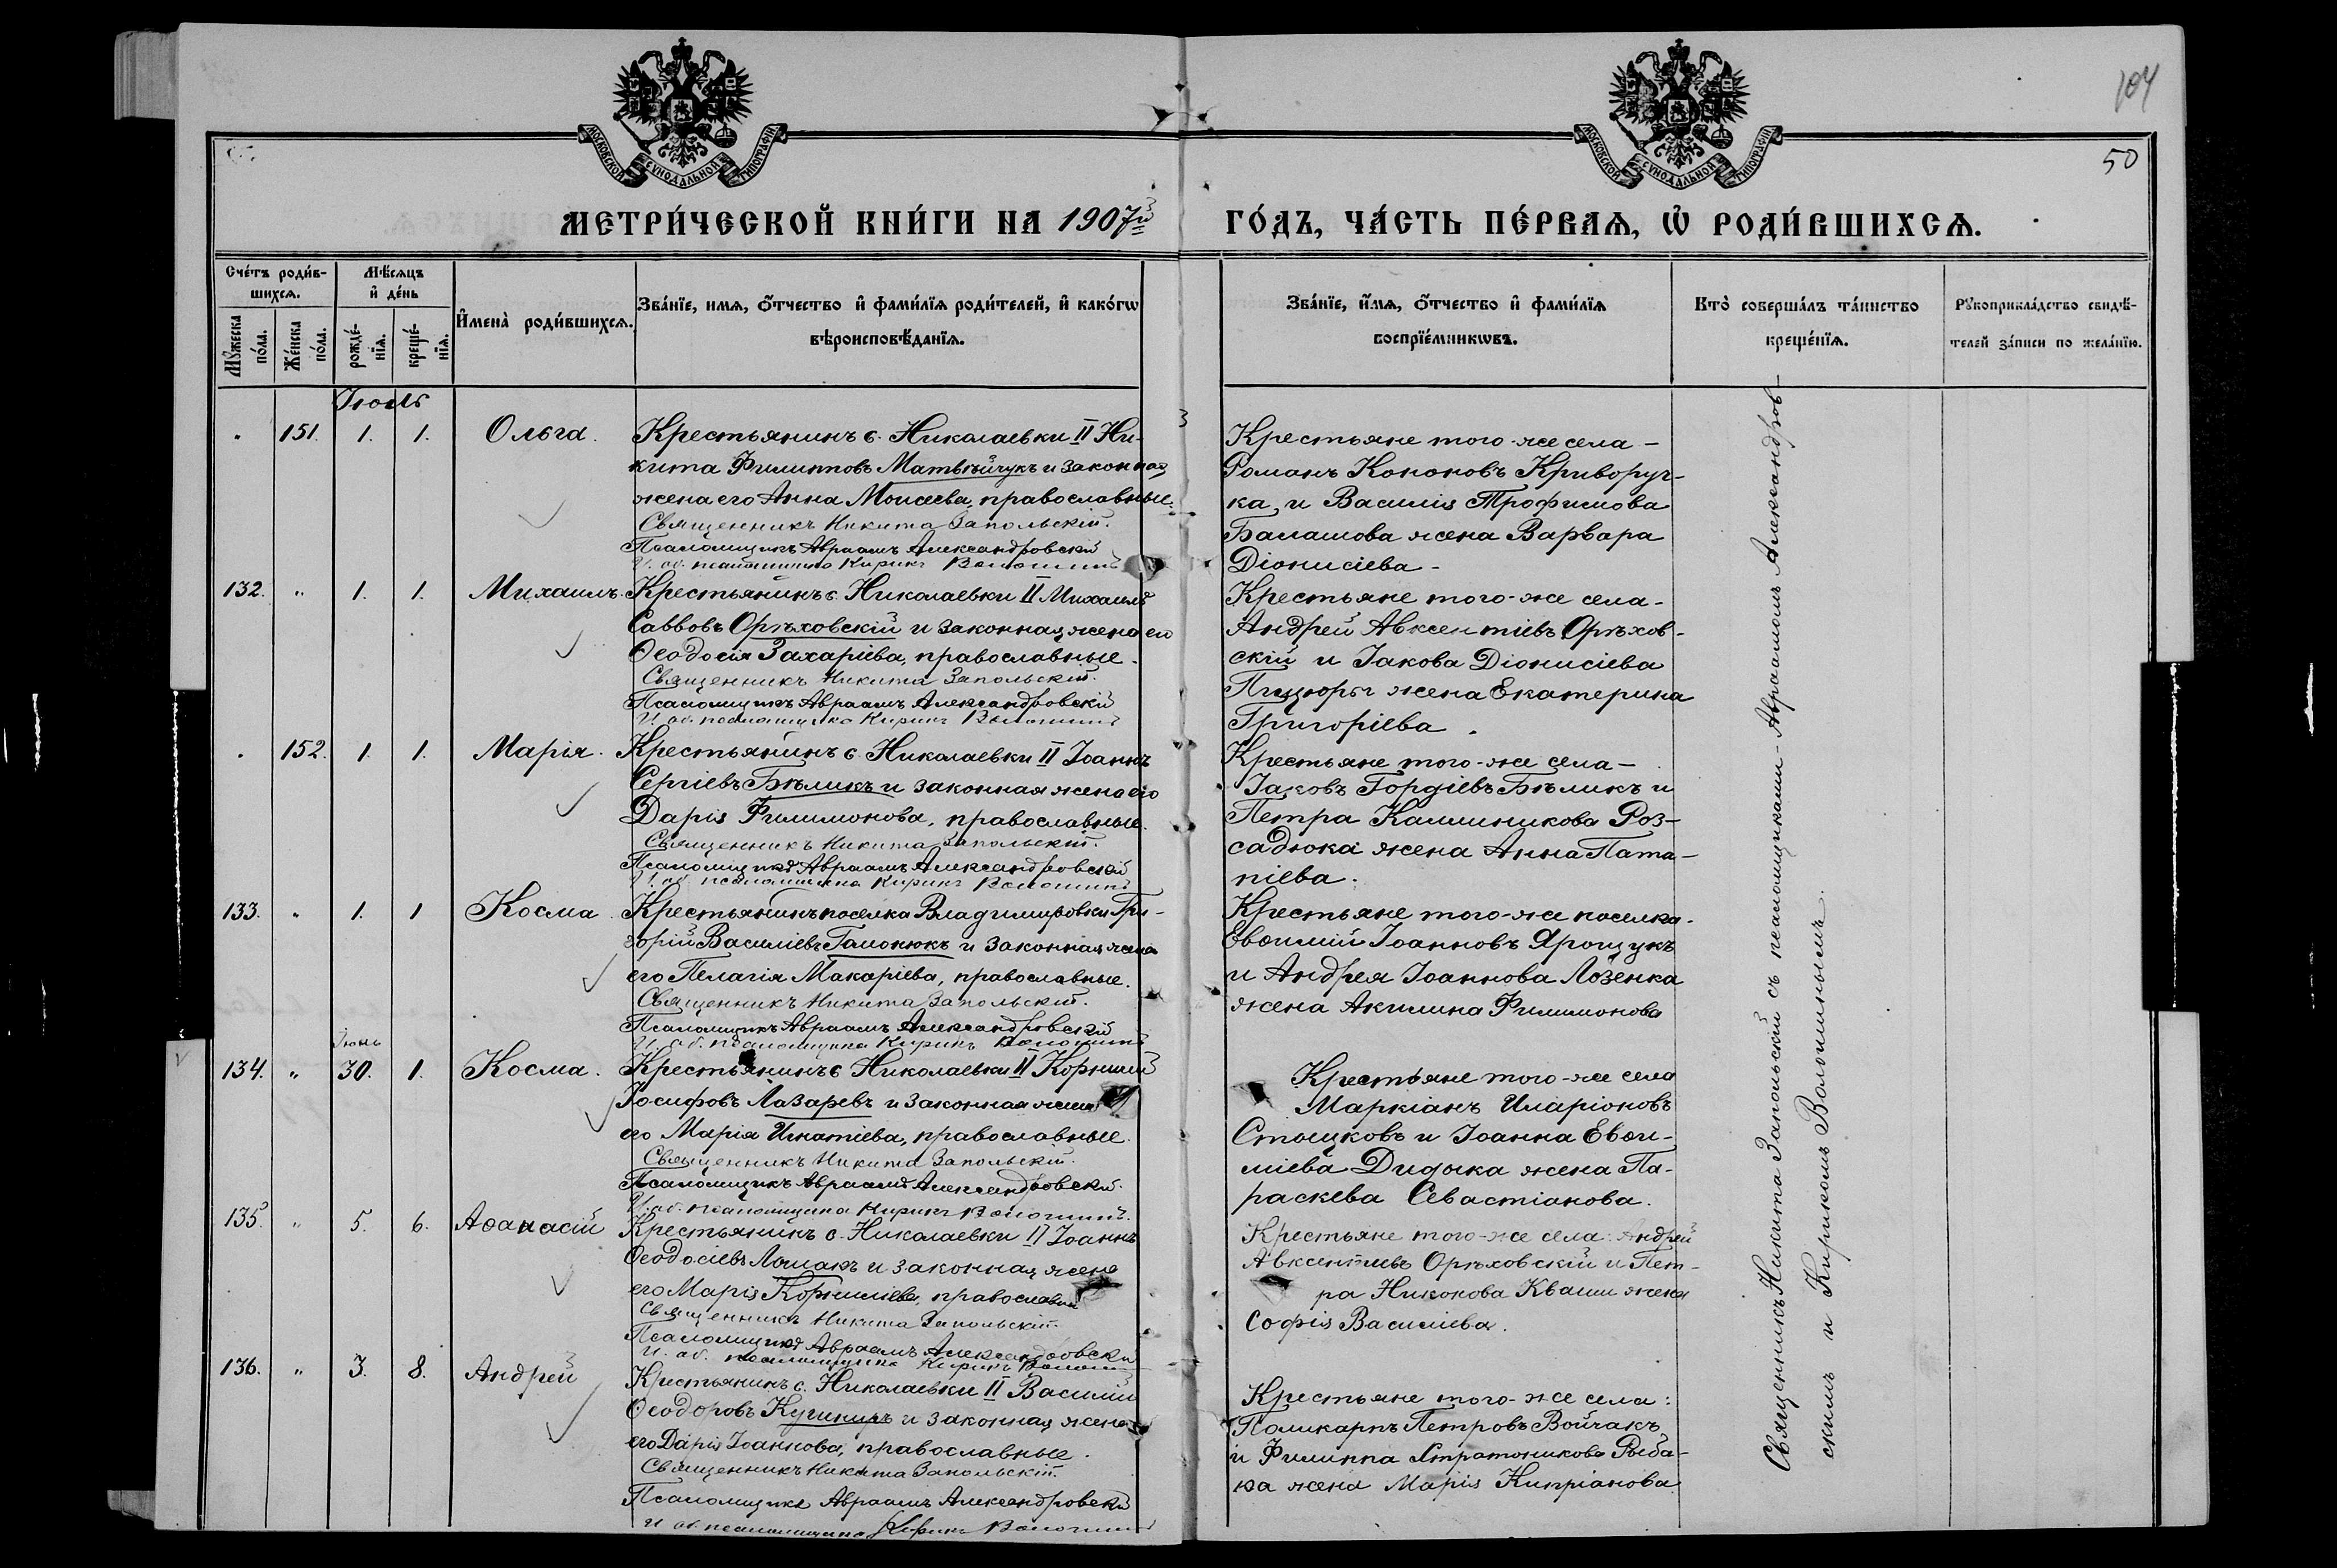 104
50
МОСКОВСКОЙ СѴНОДАЛЬНОЙ ТИПОГРАФІИ
МОСКОВСКОЙ СѴНОДАЛЬНОЙ ТИПОГРАФІИ
МЕТРИ́ЧЕСКОЙ КНИ́ГИ НА 1907й ГО́ДЪ, ЧА́СТЬ ПЕ́РВАѦ, Ѡ҆ РОДИ́ВШИХСѦ.
Сче́тъ роди́в-
шихсѧ.
Мꙋ́жеска по́ла.
Же́нска по́ла.
Мѣ́сѧцъ
и҆ де́нь
рожде́-
нїѧ.
креще́-
нїѧ.
И҆мена̀ роди́вшихсѧ.
Зва́нїе, имѧ, ѻ҆́тчество и҆ фами́лїѧ роди́телей, и҆ како́гѡ
вѣроисповѣ́данїѧ.
Зва́нїе, и҆́мѧ, ѻ҆́тчество и҆ фами́лїѧ
воспрїе́мникѡвъ.
Кто̀ соверша́лъ та́инство
креще́нїѧ.
Рꙋкоприкла́дство свидѣ́-
телей за́писи по жела́нїю.
Іюль
151. 1. 1. Ольга.
Крестьянинъ с. Николаевки II Ни-
кита Филипповъ Матвѣйчукъ и законная
жена его Анна Моисеева, православные.
Священникъ Никита Запольскій.
Псаломщикъ Авраамъ Александровскій
И. об. псаломщика Кирикъ Волошинъ
Крестьяне того-же села -
Романъ Кононовъ Криворуч-
ка, и Василія Трофимова
Балашова жена Варвара
Діонисіева -
132. " 1. 1. Михаилъ.
Крестьянинъ с. Николаевки II Михаилъ
Саввовъ Орѣховскій и законная жена его
Ѳеодосія Захаріева, православные.
Священникъ Никита Запольскій.
Псаломщикъ Авраамъ Александровскій
И об. псаломщика Кирикъ Волошинъ
Крестьяне того-же села -
Андрей Авксентіевъ Орѣхов-
скій и Іакова Діонисіева
жена Екатерина
Григоріева.
152. 1. 1. Марія.
Крестьянинъ с. Николаевки II Іоаннъ
Сергіевъ Бѣликъ и законная жена его
Дарія Филимонова, православные.
Священникъ Никита Запольскій.
Псаломщикъ Авраамъ Александровскій
И. об. псаломщика Кирикъ Волошинъ
Крестьяне того-же села -
Іаковъ Гордіевъ Бѣликъ и
Петра Каллиникова Роз-
садюка жена Анна Пата-
піева.
133. " 1. 1 Косма.
Крестьянинъ поселка Владимировки Гри-
горій Василіевъ Галонюкъ и законная жена
его Пелагія Макаріева, православные.
Священникъ Никита Запольскій.
Псаломщикъ Авраамъ Александровскій
И. об. псаломщика Кирикъ Волошинъ
Крестьяне того-же поселка -
Евѳимій Іоанновъ Ярощукъ
и Андрея Іоаннова Лозенка
жена Акилина Филимонова
Іюнь
134. " 30. 1. Косма.
Крестьянинъ с Николаевки II Корнилій
Іосифовъ Лазаревъ и законная жена
его Марія Игнатіева, православные.
Священникъ Никита Запольскій.
Псаломщикъ Авраамъ Александровскій.
И. об. псаломщика Кирикъ Волошинъ.
Крестьяне того-же села
Маркіанъ Иларіоновъ
Стоцковъ и Іоанна Евѳи-
міева Дидыка жена Па-
раскева Севастіанова.
135. " 5. 6. Аѳанасій
Крестьянинъ с. Николаевки II Іоаннъ
Ѳеодосіевъ Лошакъ и законная жена
его Марія Корниліева, православные
Священникъ Никита Запольскій.
Псаломщикъ Авраамъ Александровскій
И. об. псаломщика Кирикъ Волошинъ
Крестьяне того-же села: Андрей
Авксентіевъ Орѣховскій и Пет-
ра Никонова Кваши жена
Софія Василіева.
136. " 3. 8. Андрей
Крестьянинъ с. Николаевки II Василій
Ѳеодоровъ и законная жена
его Дарія Іоаннова, православные.
Священникъ Никита Запольскій.
Псаломщикъ Авраамъ Александровскій
И об. псаломщика Кирикъ Волошинъ
Крестьяне того-же села:
Поликарпъ Петровъ Войчакъ
и Филиппа Стратоникова Рыба-
ка жена Марія Кипріанова
Священникъ Никита Запольскій съ псаломщиками - Авраамомъ Александров-
скимъ и Кирикомъ Волошинымъ.